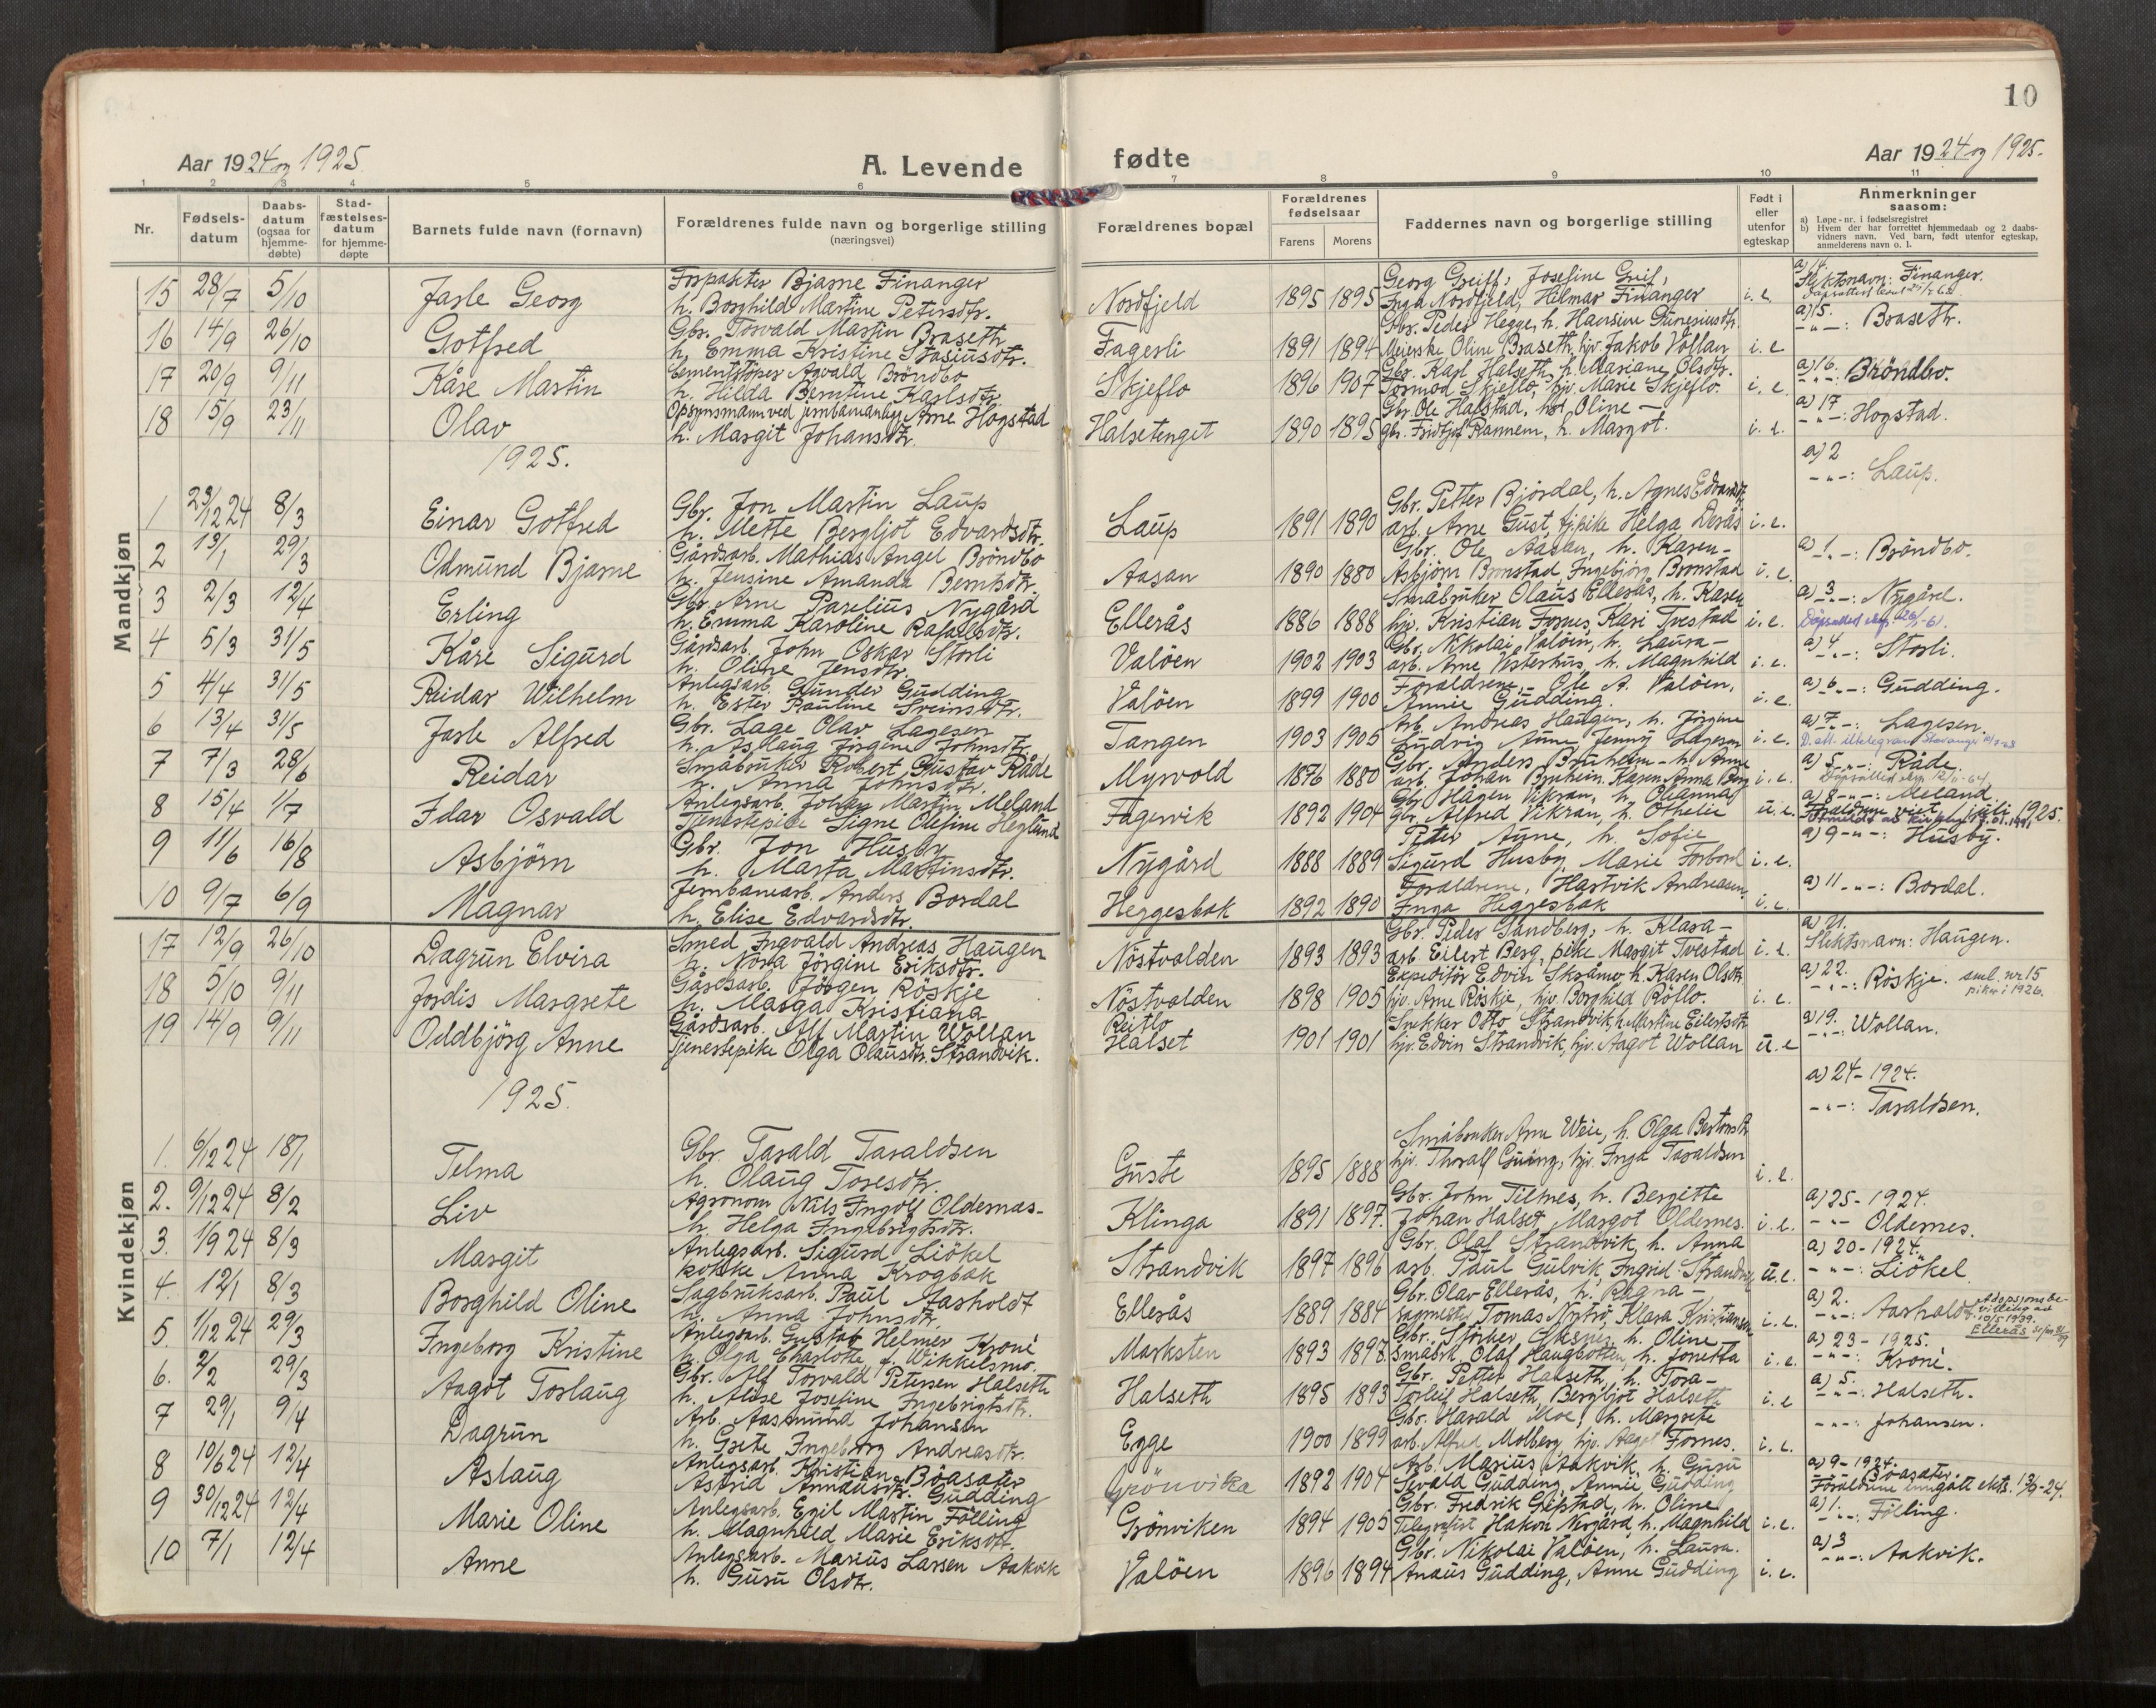 10
Aar 1924 og 1925
A. Levende
fødte
Aar 1924 og 1925.
1 2 3 4 5 6 7 8 9 10 11
Nr.
Fødsels-
datum
Daabs-
datum
(ogsaa for
hjemme-
døbte)
Stad-
fæstelses-
datum
for hjemme-
døpte
Barnets fulde navn (fornavn)
Forældrenes fulde navn og borgerlige stilling
(næringsvei)
Forældrenes bopæl
Forældrenes
fødselsaar
Farens Morens
Faddernes navn og borgerlige stilling
Født i
eller
utenfor
egteskap
Anmerkninger
saasom:
a) Løpe-nr. i fødselsregistret
b) Hvem der har forrettet hjemmedaab og 2 daabs-
vidners navn. Ved barn, født utenfor egteskap,
anmelderens navn o. l.
Mandkjøn
15 28/7 5/10 Jarle Georg
Forpakter Bjarne Finanger
h. Borghild Martine Petersdtr.
Nordfjeld 1895 1895
Georg Greiff, Josefine Greif,
Inga Nordfjeld, Hilmar Finanger
i. e.
a) 14.
Slektsnavn: Finanger.
16 14/9 26/10 Gotfred
Gbr. Torvald Martin Braseth
h. Emma Kristine Stasiusdtr.
Fagerli 1891 1894
Gbr. Peder Hegge, h. Hansine
Meierske Oline Braseth, hjv. Jakob Vollan
i. e
a) 15.
-"-: Braseth.
17 20/9 9/11 Kåre Martin
Cementstøper Agvald Bröndbo
h. Hilda Berntine Karlsdtr.
Skjeflo 1896 1907
Gbr. Karl Halseth, h. Mariane Olsdtr.
Tormod Skjeflo, hjv. Marie Skjeflo.
i. e.
a) 16.
-"-: Bröndbo.
18 15/9 23/11 Olav
Opsynsmann ved jernbaneanlegg Arne Hogstad
h. Margit Johansdtr.
Halsetenget 1890 1895
Gbr. Ole Halstad, h. Oline –
gbr. Fridtjof Rannem, h. Margot.
i. e.
a) 17
-"-: Hogstad.
1925.
1 23/12 24 8/3 Einar Gotfred
Gbr. Jon Martin Laup
h. Mette Bergljot Edvardsdtr.
Laup 1891 1890
Gbr. Petter Bjørdal, h. Agnes Edvardsdtr.
arb. Arne Gust, tj.pike Helga Derås
i. e.
a) 2
-"-: Laup.
2 13/1 29/3 Odmund Bjarne
Gårdsarb. Mathias Angel Bröndbo
h. Jensine Amanda Berntsdtr.
Aasan 1890 1880
Gbr. Ole Aasan, h. Karen –
Asbjörn Bronstad, Ingebjörg Bronstad
i. e.
a) 1. -"-: Bröndbo.
3 2/3 12/4 Erling
Gbr. Arne Parelius Nygård
h. Emma Karoline Rafaelsdtr.
Ellerås 1886 1888
Småbruker Olaus Ellerås, h. Karen
hjv. Kristian Fosnes, Kari Tvestad
i. e.
a) 3. -"-: Nygård.
4 5/3 31/5 Kåre Sigurd
Gårdsarb. John Oskar Storli
h. Oline Jensdtr.
Valöen 1902 1903
Gbr. Nikolai Valöen, h. Laura –
arb. Arne Vesterhus, h. Magnhild
i. e.
a) 4. -"-: Storli.
5 4/4 31/5 Reidar Wilhelm
Anlegsarb. Gunder Gudding
h. Ester Pauline Sveinsdtr.
Valöen 1899 1900
Foraldrene, Ole A. Valöen,
Annie Gudding.
i. e.
a) 6. -"-: Gudding.
6 13/4 31/5 Jarle Alfred
Gbr. Lage Olav Lagesen
h. Aslaug Jörgine Johnsdtr.
Tangen 1903 1905
Arb. Andreas Haugen, h. Jörgine
Ludvig Aune, Jenny Lagesen
i. e.
a) 7. -"-: Lagesen.
7 7/3 28/6 Reidar
Småbruker Robert Gustav Råde
h. Anna Johnsdtr.
Myrvold 1876 1880
Gbr. Anders Bruheim – h. Anne
arb. Johan Bruheim, Karen Anna Berg
i. e.
a) 5. -"-: Råde.
8 15/4 1/7 Idar Osvald
Anlegsarb. Johan Martin Meland
Tjenestepike Signe Olefine Heglund
Fagervik 1892 1904
Gbr. Hågen Vikran, h. Olianna
Gbr. Alfred Vikran, h. Othelie
u. e.
a) 8 -"-: Meland.
Foraldrene viet juli 1925.
9 11/6 16/8 Asbjörn
Gbr. Jon Husby
h. Marta Martinsdtr.
Nygård 1888 1889
Peter Aune, h. Sofie
Sigurd Husby, Marie Forbord
i. e.
a) 9 -"-: Husby.
10 9/7 6/9 Magnar
Jernbanearb. Anders Bordal
h. Elise Edvardsdtr.
Heggesbak 1892 1890
Foraldrene, Hartvik Andreasen,
Inga Heggesbak
i. e.
a) 11. -"-: Bordal.
Kvindekjøn
17 12/9 26/10 Dagrun Elvira
Smed Ingvald Andreas Haugen
h. Nora Jörgine Eriksdtr.
Nöstvolden 1893 1893
Gbr. Peder Sandberg, h. Klara –
arb. Eilert Berg, pike Margit Tvestad
i. e.
a) 21.
Slektsnavn: Haugen.
18 5/10 9/11 Jordis Margrete
Gårdsarb. Jörgen Röskje
h. Marga Kristiana
Nöstvolden 1898 1905
Expeditör Edvin Skråmo, h. Karen Olsdtr
hjv. Arne Röskje, hjv. Borghild Röllo.
i. e.
a) 22.
-"-: Röskje. sml. nr 15
piker i 1926.
19 14/9 9/11 Oddbjörg Anne
Gårdsarb. Alf Martin Wollan
Tjenestepike Olga Olausdtr. Strandvik.
Reitlo
Halset 1901 1901
Snekker Otto Strandvik, h. Martine Eilertsdtr
hjv. Edvin Strandvik, hjv. Aagot Wollan
u. e
a) 19.
-"-: Wollan.
1925.
1. 6/12 24 18/1 Telma
Gbr. Tarald Taraldsen
h. Olaug Toresdtr.
Guste 1895 1888
Småbruker Arne Weie, h. Olga
hjv. Thoralf Guing, hjv. Inga Taraldsen
i. e.
a) 24 – 1924.
-"-: Taraldsen.
2. 9/12 24 8/2 Liv
Agronom Nils Ingolf Oldernes –
h. Helga Ingebrigtsdtr.
Klinga 1891 1897.
Gbr. John Tilmes, h. Bergitte
Johan Halset, Margot Oldernes.
i. e.
a) 25 – 1924.
-"- Oldernes.
3. 1/9 24 8/3 Margit
Anlegsarb. Sigurd Liökel
kokke Anna Krogbak
Strandvik 1897 1896
Gbr. Olaf Strandvik, h. Anna
arb. Paul Gulvik, Ingrid Strandvik
u. e.
a) 20 – 1924.
-"-: Liökel.
4. 12/1 8/3 Borghild Oline
Sagbruksarb. Paul Aarholdt
h. Anna Johnsdtr.
Ellerås 1889 1884
Gbr. Olav Ellerås, h. Ragna –
sagmester Tomas Nyströ, Klara Kristiansen
i. e.
a) 2.
-"-: Aarholdt
Adopsjonsbe-
villing av
10/5 1939.
Ellerås
5. 1/12 24 29/3 Ingeborg Kristine
Anlegsarb. Gustav Helmer Kroné
h. Olga Charlotte f. Wikkelsmo.
Marksten 1893 1897.
Gbr. h. Oline
Småbr. Olaf Haugbotten, h. Jonetta
i. e.
a) 23 – 1925.
-"-: Kroné.
6. 2/2 29/3 Aagot Torlaug
Gbr. Alf Torvald Petersen Halseth
h. Alise Josefine Ingebrigtsdtr.
Halseth 1895 1893
Gbr. Petter Halseth, h. Tora –
Torleif Halseth, Bergljot Halseth
i. e
a) 5.
-"-: Halseth.
7 29/1 9/4 Dagrun
Arb. Aasmund Johansen
h. Grete Ingeborg Andreasdtr.
Egge 1900 1899
Gbr. Harald Moe, h. Margrete
arb. Alfred Molberg, hjv. Aagot Fornes.
i. e.
-"-: Johansen.
8 10/6 24 12/4 Aslaug
Anlegsarb. Kristian Böasater
Astrid Annausdtr. Gudding
Grönvika 1892 1904
Arb. Marius Aakvik, h. Guru
Sevald Gudding, Annie Gudding
a) 9 – 1924.
Böasater.
Foraldrene inngått ekt. 13/9-24.
9 30/12 24 12/4 Marie Oline
Anlegsarb. Egil Martin Fölling
h. Magnhild Marie Eriksdtr.
Grönviken 1894 1905
Gbr. Fredrik Gipstad, h. Oline
Telegrafist Hakon Nergård, h. Magnhild
i. e.
a) 1.
-"-: Fölling.
10 7/1 12/4 Anne
Anlegsarb. Marius Larsen Aakvik
h. Guru Olsdtr.
Valöen 1896 1894
Gbr. Nikolai Valöen, h. Laura.
Anaus Gudding, Anne Gudding
i. e.
a) 3
-"-: Aakvik.